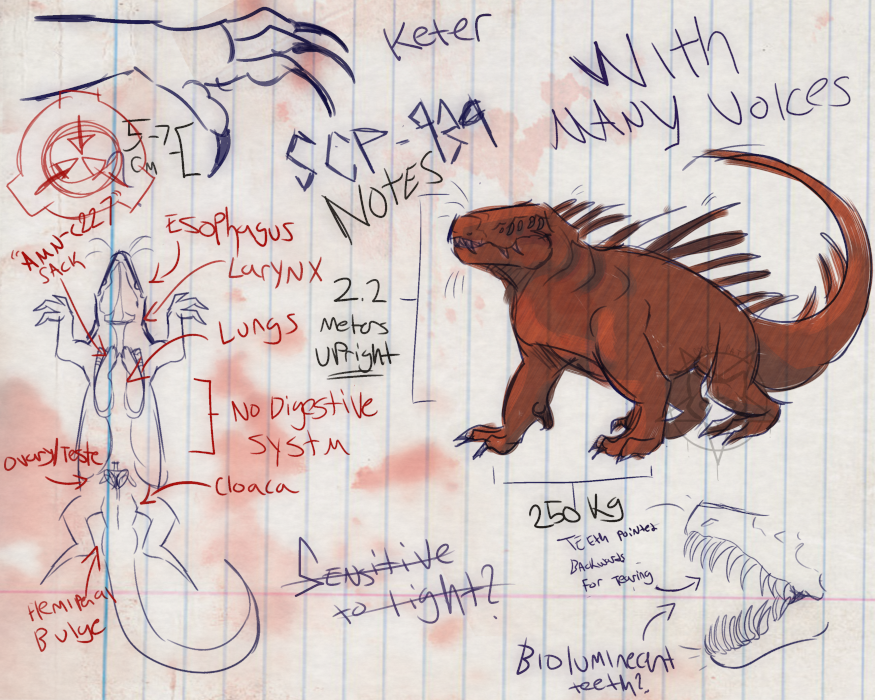 Keter
SCP-939
With
MANY Voices
Notes
5-7
cm
"AMN-C227"
SACK
Esophagus
Larynx
Lungs
No Digestive
Systm
Ovary/Teste
Cloaca
Hemipenal
Bulge
2.2
Meters
Upright
250 Kg
Teeth pointed
Backwards
For Tearing
Sensitive
to light?
Bioluminecent
teeth?